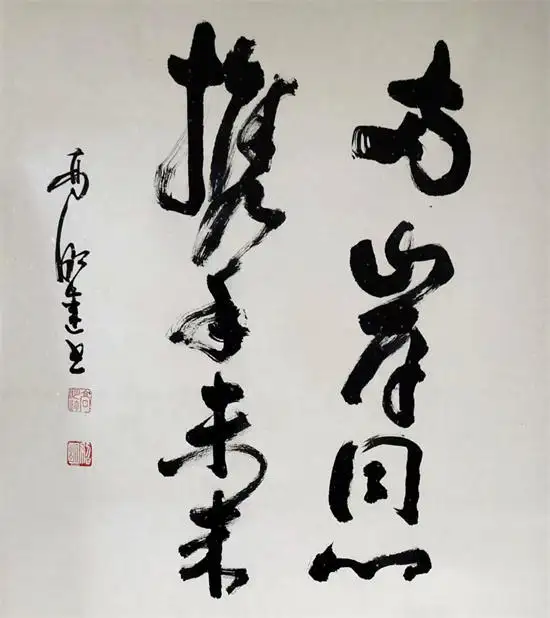 两岸同心
携手未来
高 书